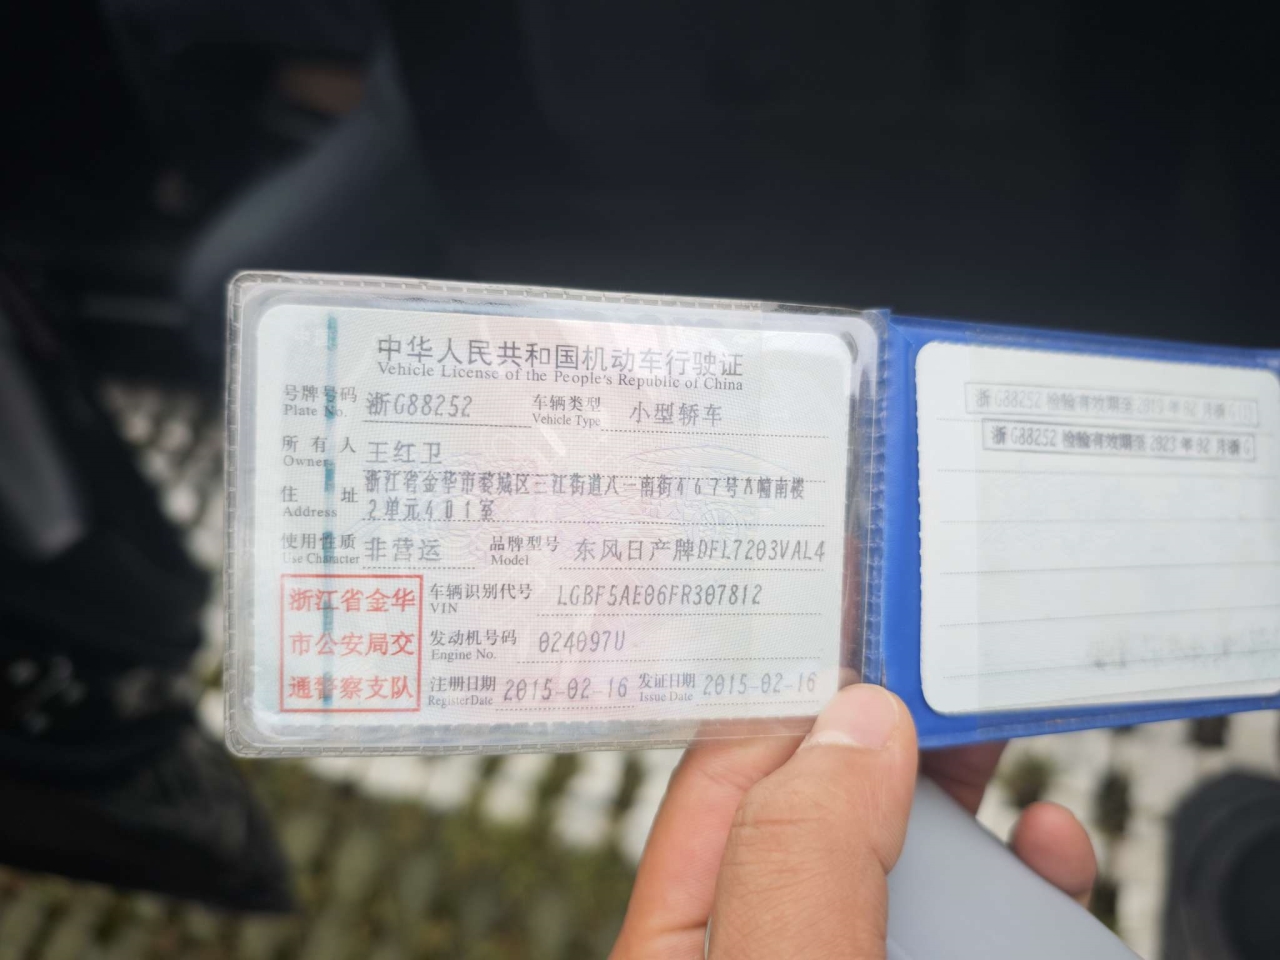 中华人民共和国机动车行驶证
Vehicle License of the People's Republic of China
号牌号码 浙G88252 车辆类型 小型轿车
Plate No. Vehicle Type
所有人 王红卫
Owner
住址 浙江省金华市婺城区三江街道八一南街467号A幢南楼
Address 2单元401室
使用性质 非营运 品牌型号 东风日产牌DFL7203VAL4
Use Character Model
车辆识别代号 LGBF5AE06FR307812
VIN
发动机号码 024097U
Engine No.
注册日期 2015-02-16 发证日期 2015-02-16
Register Date Issue Date
浙江省金华
市公安局交
通警察支队
浙G88252 检验有效期至2019年02月浙G
浙G88252 检验有效期至2023年02月浙G